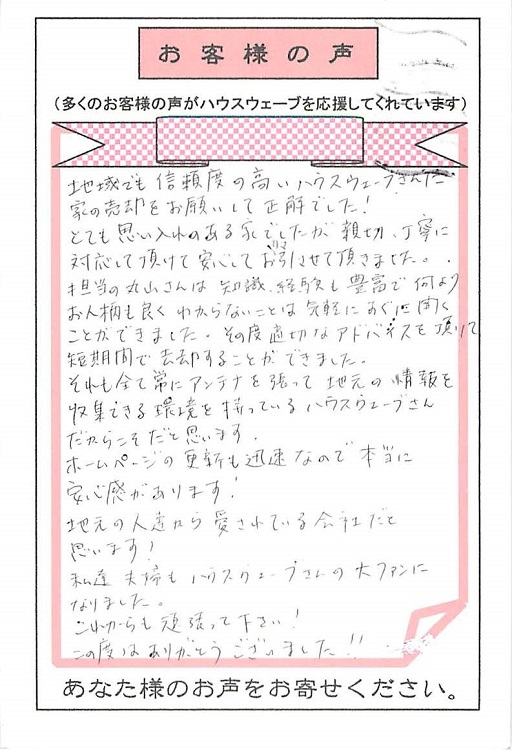 お客様の声
(多くのお客様の声がハウスウェーブを応援してくれています)
地域でも信頼度の高いハウスウェーブさんに
家の売却をお願いして正解でした!
とても思い入れのある家でしたが親切、丁寧に
対応して頂けて安心してお引させて頂きました。
担当の丸山さんは知識、経験も豊富で何より
お人柄も良くわからないことは気軽にすぐに聞く
ことができました。その度適切なアドバイスを頂いて
短期間で売却することができました。
それも全て常にアンテナを張って地元の情報を
収集できる環境を持っているハウスウェーブさん
だからこそだと思います。
ホームページの更新も迅速なので本当に
安心感があります!
地元の人達から愛されている会社だと
思います!
私達夫婦もハウスウェーブさんの大ファンに
なりました。
これからも頑張って下さい!
この度はありがとうございました!!
あなた様のお声をお寄せください。